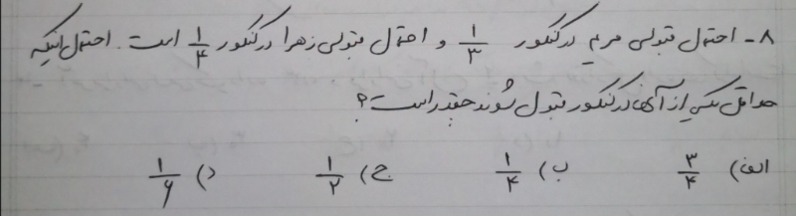 ۸- احتمال قبولی مریم در کنکور ۱/۳ و احتمال قبولی زهرا در کنکور ۱/۴ است. احتمال اینکه
حداقل یکی از آنها در کنکور قبول شوند چقدر است؟
الف) ۳/۴ ب) ۱/۴ ج) ۱/۲ د) ۱/۶